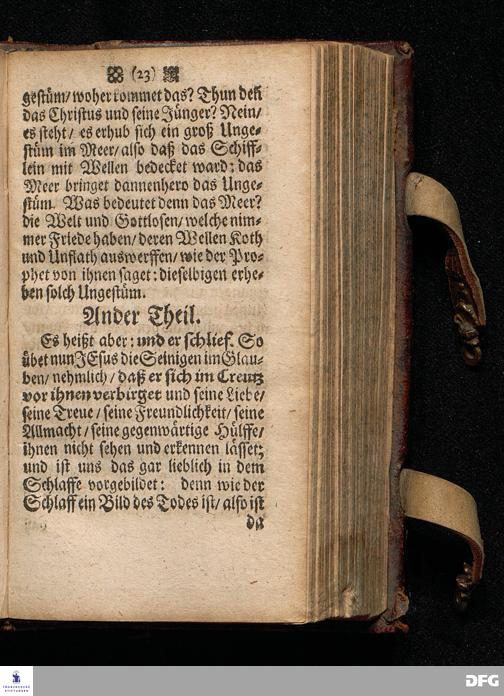 (23)
gestüm/ woher kommet das? Thun deñ
das Christus und seine Jünger? Nein/
es steht/ es erhub sich ein groß Unge-
stüm im Meer/ also daß das Schiff-
lein mit Wellen bedecket ward: das
Meer bringet dannenhero das Unge-
stüm. Was bedeutet denn das Meer?
die Welt und Gottlosen/ welche nim-
mer Friede haben/ deren Wellen Koth
und Unflath auswerffen/ wie der Pro-
phet von ihnen saget: dieselbigen erhe-
ben solch Ungestüm.
Ander Theil.
Es heißt aber: und er schlief. So
übet nun JEsus die Seinigen im Glau-
ben/ nehmlich/ daß er sich im Creutz
vor ihnen verbirget und seine Liebe/
seine Treue/ seine Freundlichkeit/ seine
Allmacht/ seine gegenwärtige Hülffe/
ihnen nicht sehen und erkennen lässet;
und ist uns das gar lieblich in dem
Schlaffe vorgebildet: denn wie der
Schlaff ein Bild des Todes ist/ also ist
da
FRANCKESCHE
STIFTUNGEN
DFG